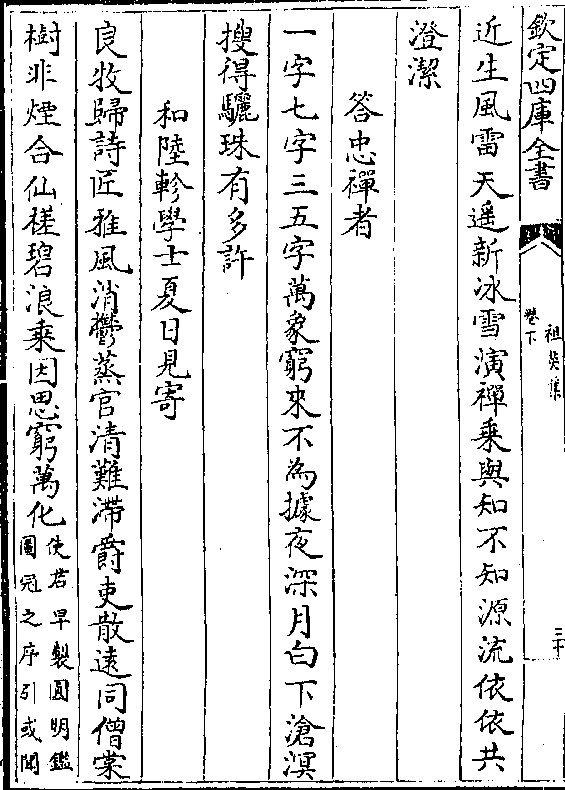 欽定四庫全書
祖英集
卷下
三十
近生風雷天遥新氷雪演禪乘與知不知源流依依共
澄潔
答忠禪者
一字七字三五字萬象窮來不為據夜深月白下滄溟
搜得驪珠有多許
和陸軫學士夏日見寄
良牧歸詩匠雅風消鬱蒸官清難滯爵吏散逺同僧棠
樹非煙合仙槎碧浪乘因思窮萬化
使君早製圓明鑑
圖冠之序引或聞